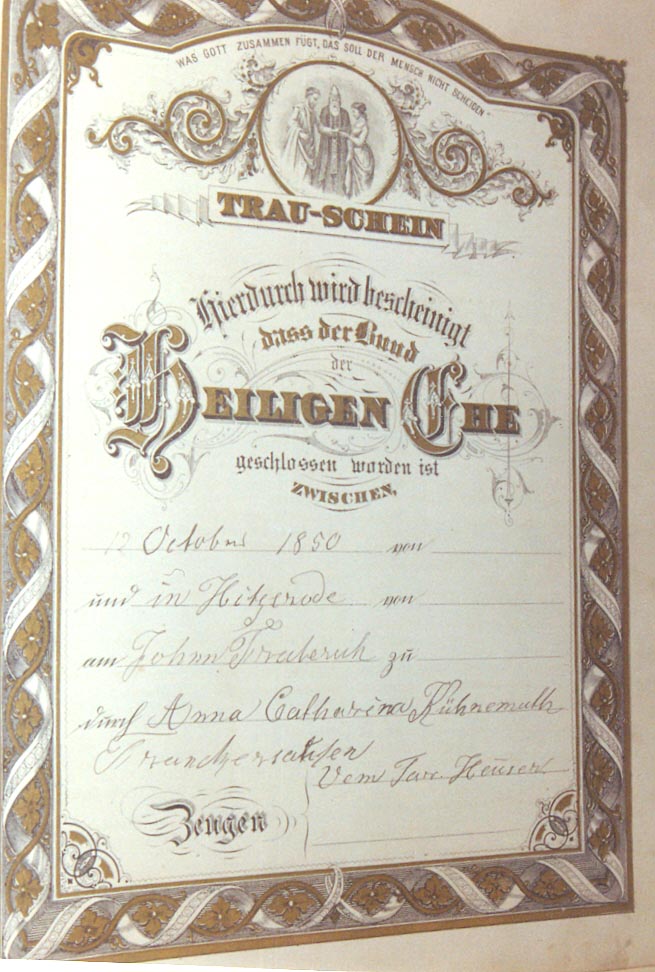 WAS GOTT ZUSAMMEN FÜGT, DAS SOLL DER MENSCH NICHT SCHEIDEN"
TRAU-SCHEIN
Hierdurch wird bescheinigt
dass der Bund
der
HEILIGEN EHE
geschlossen worden ist
ZWISCHEN,
12 October 1850 von
und in Hitzerode von
am Johann zu
durch Anna Catharina Kühnemuth
Vom Heuser
Zeugen